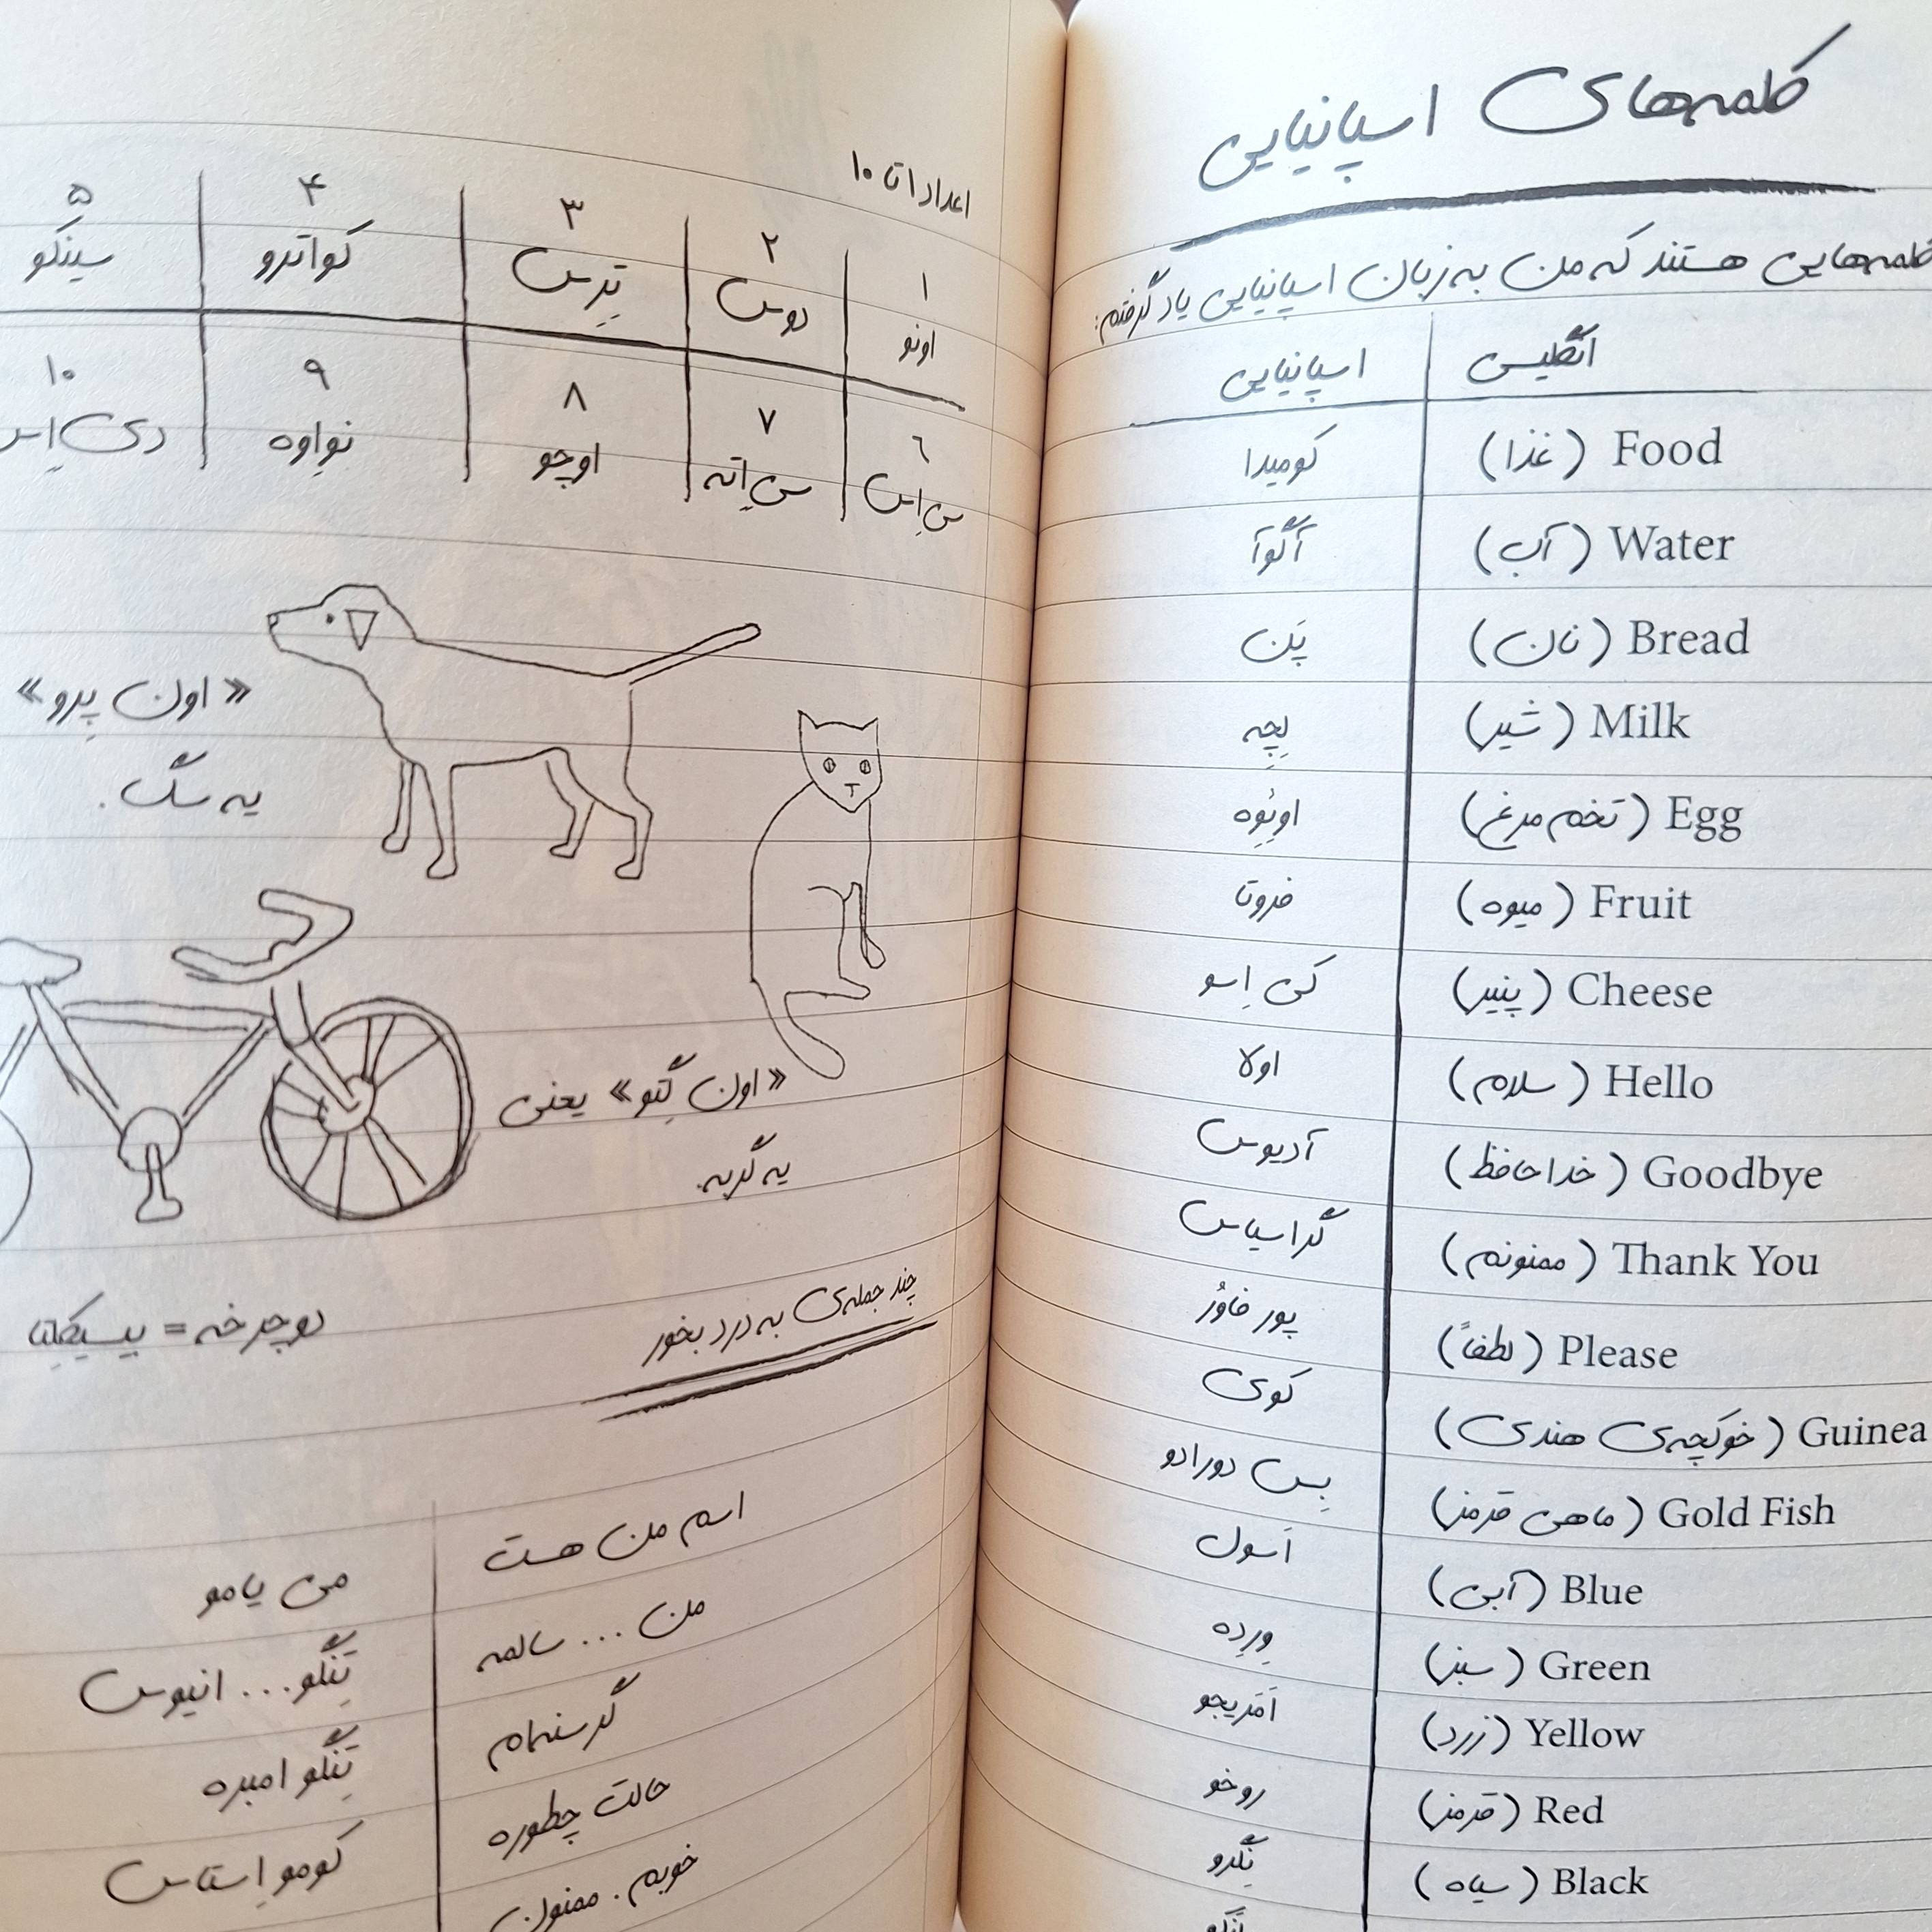 کلمه‌های اسپانیایی
کلمه‌هایی هستند که من به زبان اسپانیایی یاد گرفتم:
انگلیسی اسپانیایی
Food (غذا) کومیدا
Water (آب) آگوآ
Bread (نان) پَن
Milk (شیر) لِچِه
Egg (تخم مرغ) اوئِوِه
Fruit (میوه) فروتا
Cheese (پنیر) کی اِسو
Hello (سلام) اولا
Goodbye (خداحافظ) آدیوس
Thank You (ممنونم) گراسیاس
Please (لطفاً) پور فاوُر
Guinea (خوکچه‌ی هندی) کوی
Gold Fish (ماهی قرمز) پِس دورادو
Blue (آبی) اَسول
Green (سبز) وِردِه
Yellow (زرد) اَمَریجو
Red (قرمز) روخو
Black (سیاه) نِگرو
اعداد ۱ تا ۱۰
۱ ۲ ۳ ۴ ۵
اونو دوس تِرِس کواترو سینکو
۶ ۷ ۸ ۹ ۱۰
سی اِس سی اِته اوچو نواوه دی اِس
«اون پِرو»
یه سگ.
«اون گَتو» یعنی
یه گربه.
دوچرخه = بیسیکلِتا
چند جمله‌ی به درد بخور
اسم من هست می یامو
من ... سالمه تِنگو... انیوس
گرسنه‌ام تِنگو امبره
حالت چطوره کومو اِستاس
خوبم. ممنون